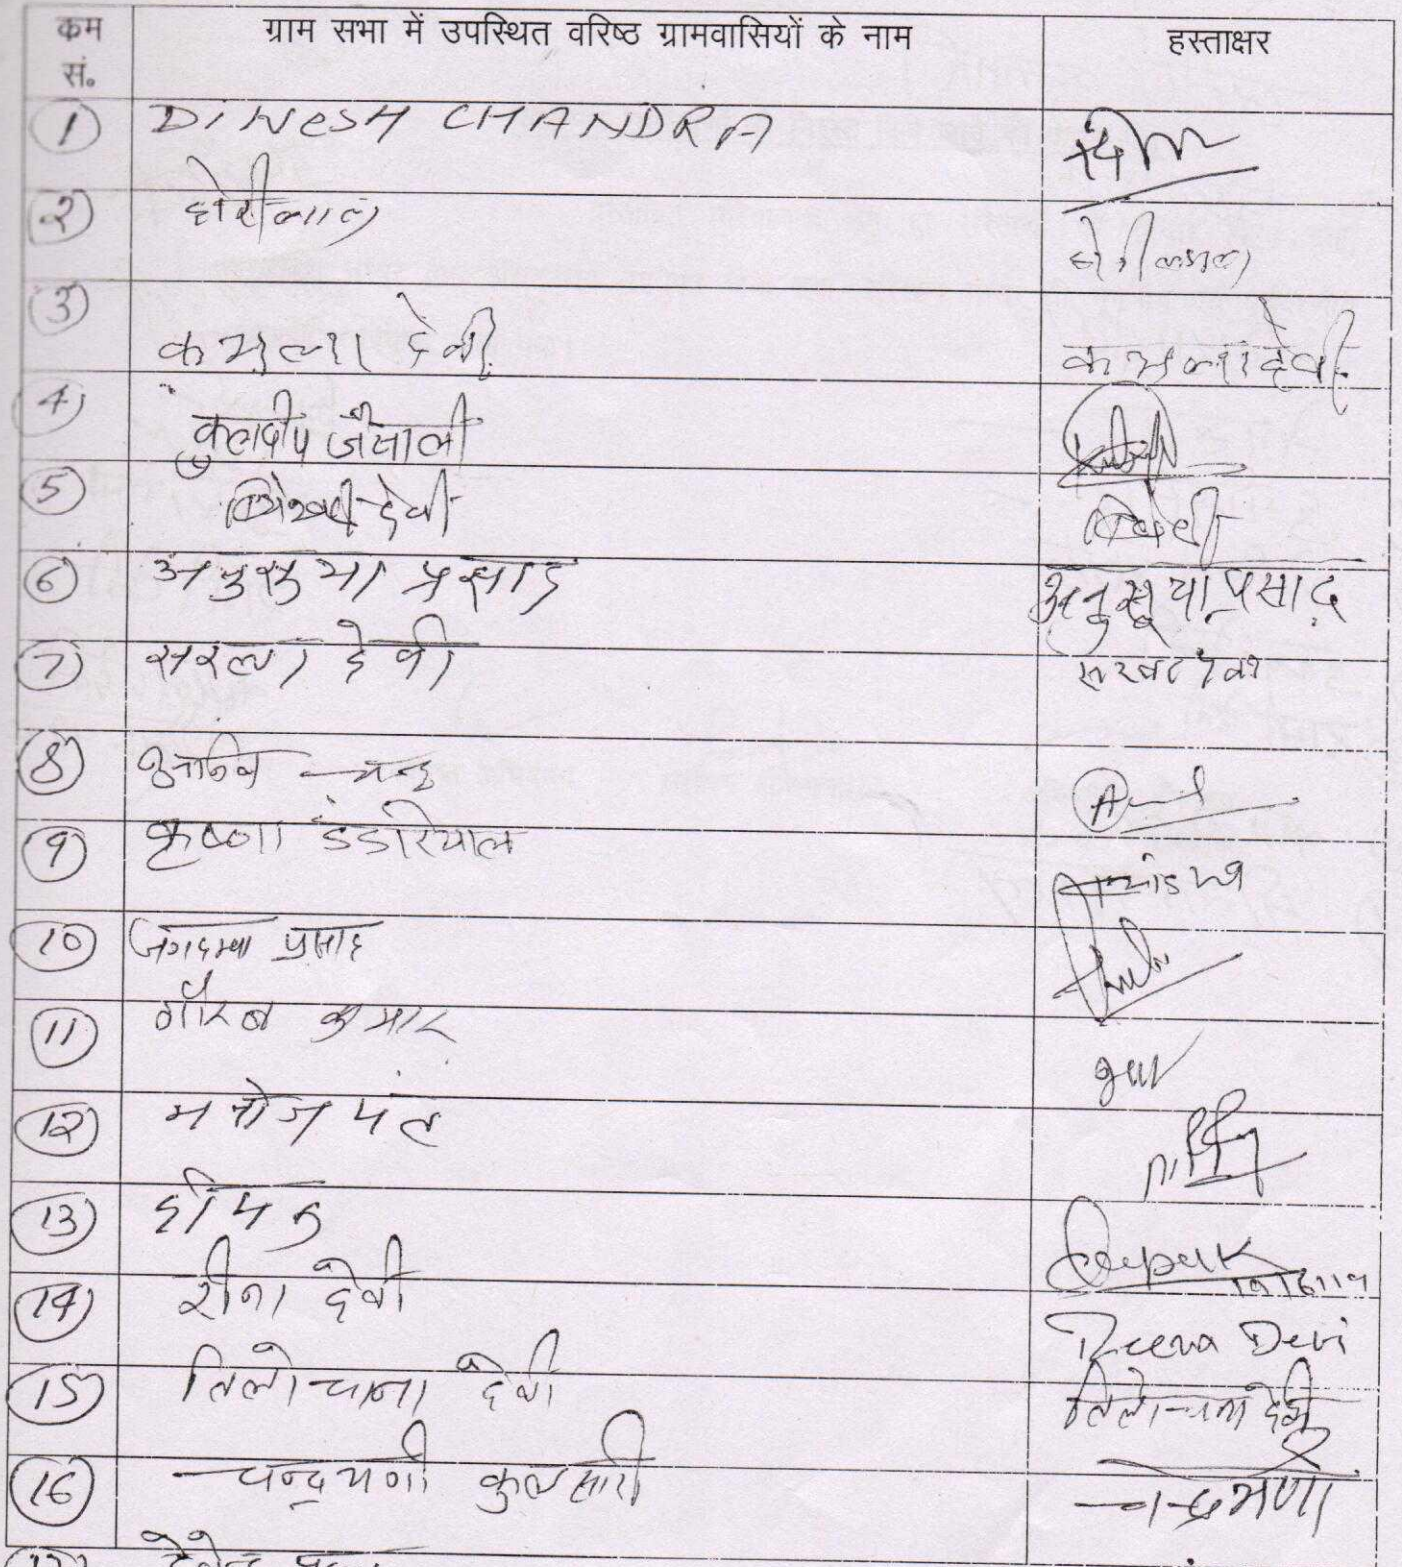 कम ग्राम सभा में उपस्थित वरिष्ठ ग्रामवासियों के नाम हस्ताक्षर
सं०
1 DINESH CHANDRA
2
3 कमला देवी कमला देवी
4 कुलदीप जैसाली
5 देवी
6 अनुसुया प्रसाद अनुसूया प्रसाद
7 सरला देवी
8 चन्द्र
9 कृष्णा डंडरियाल
10 जगदम्बा प्रसाद
11 गौरव कुमार
12 मनोज पंत
13 दीपक Deepak
14 रीना देवी Reena Devi
15 तिलोचाना देवी तिलोचना देवी
16 चन्द्रमणी चन्द्रमणी